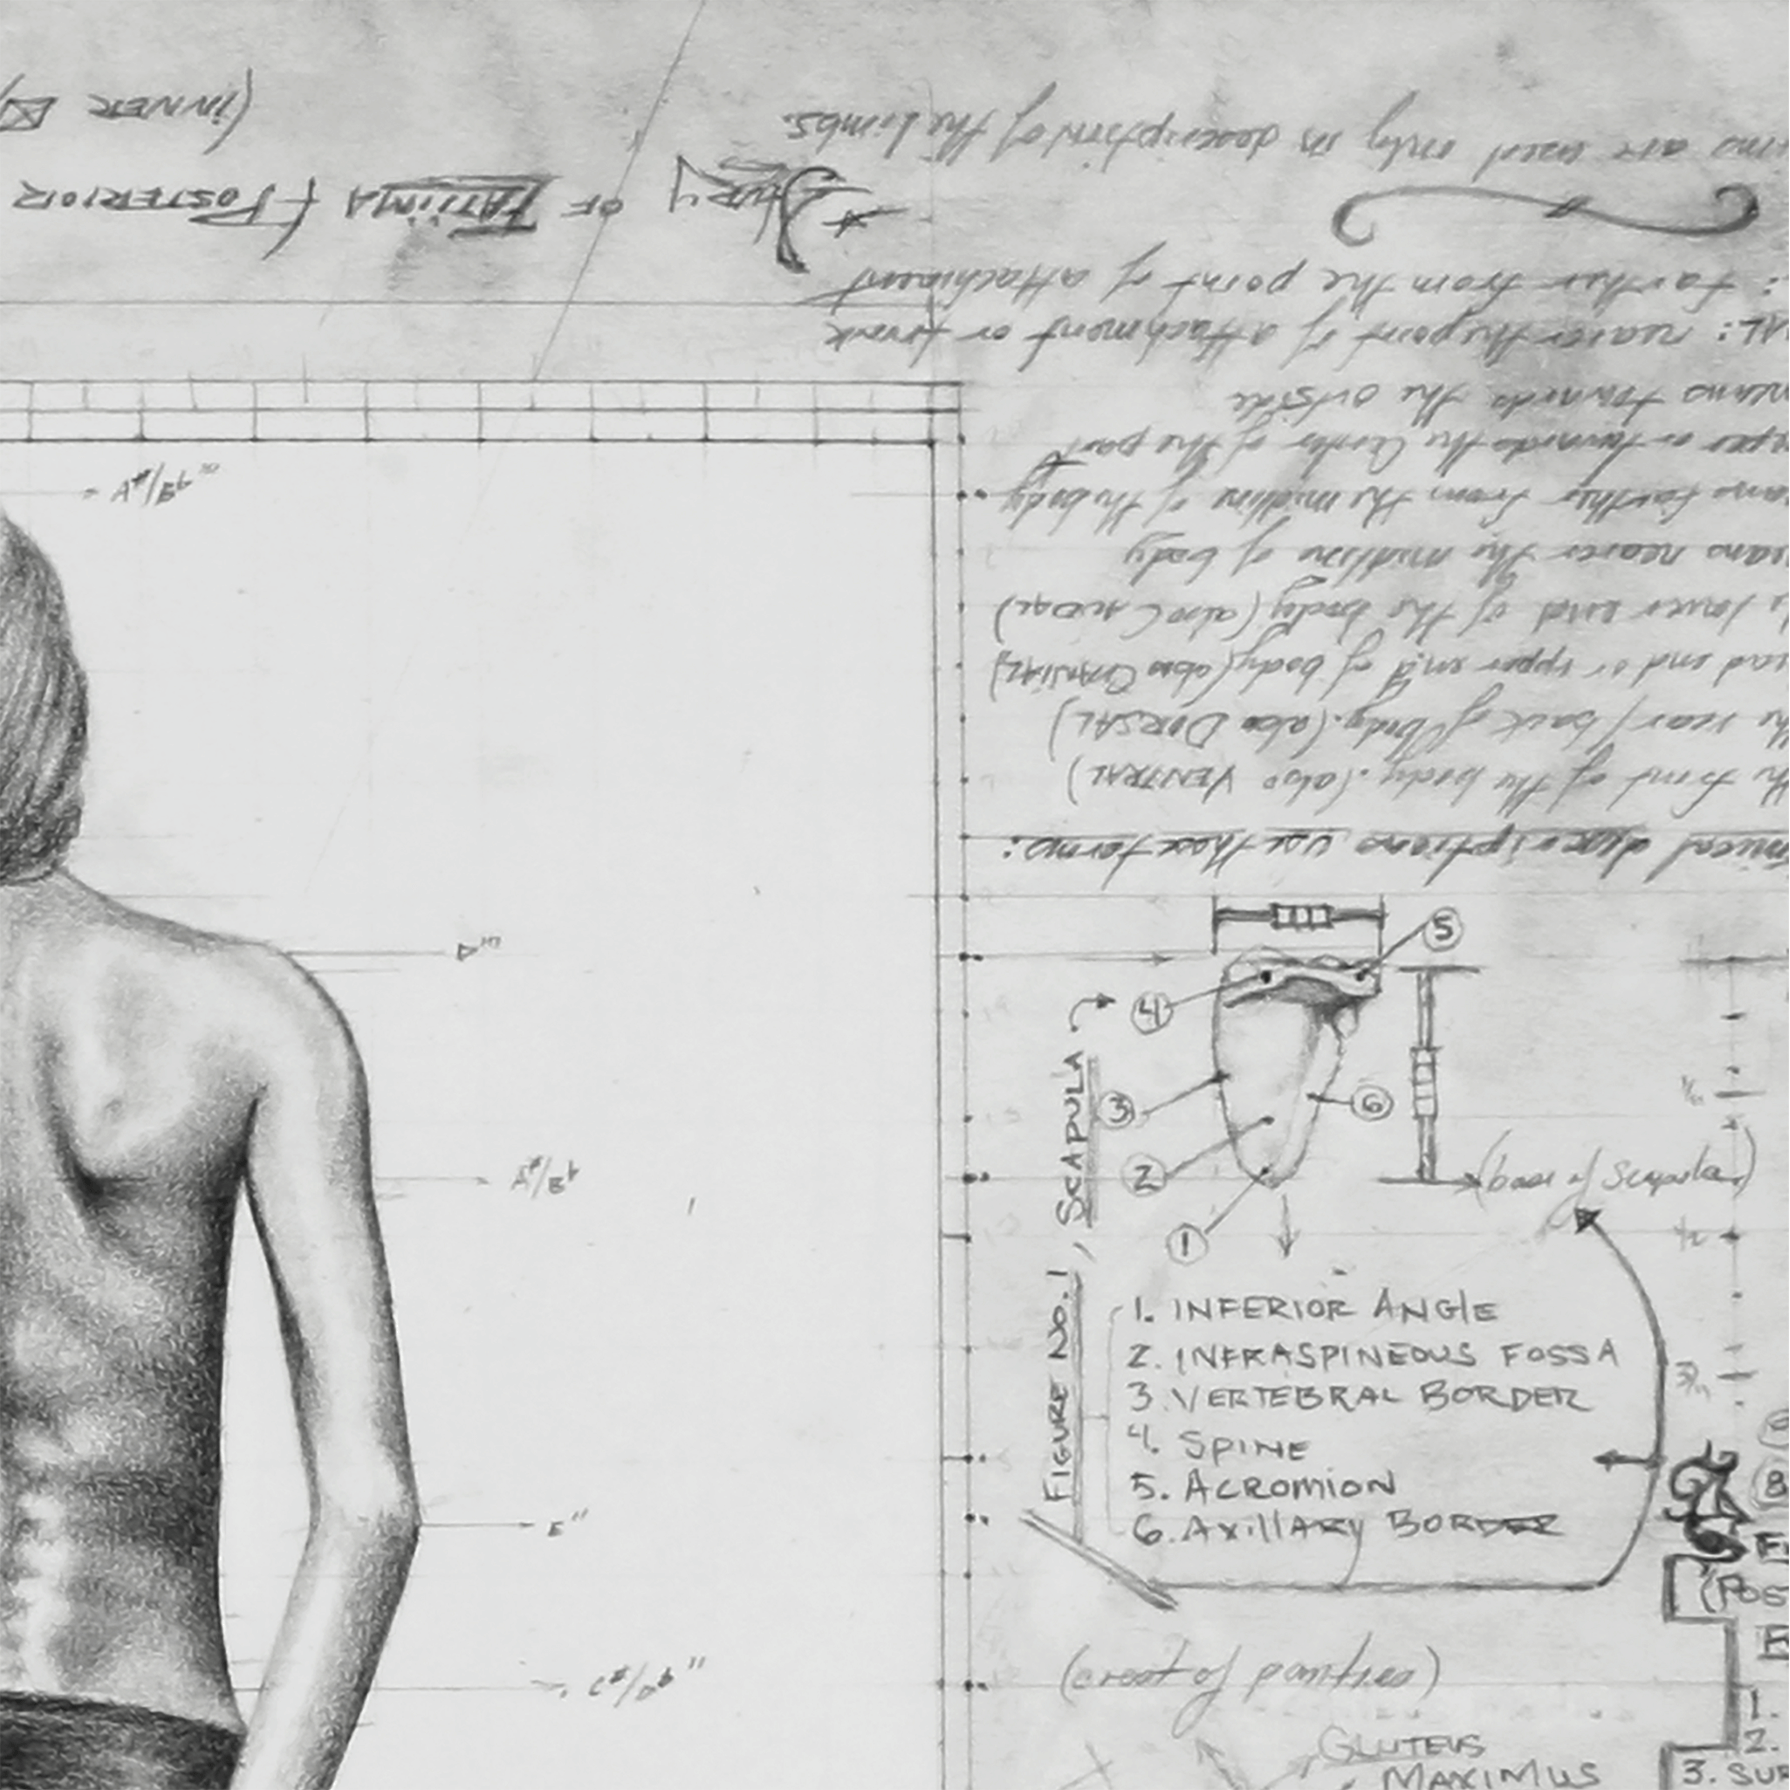 (INNER
STUDY OF FATIMA (POSTERIOR
are used only in description of the limbs.
: farther from the point of attachment
AL: nearer the point of attachment or trunk
means towards the outside
upper or towards the center of the part
means farther from the midline of the body
means nearer the midline of body
lower end of the body (also CAUDAL)
head end or upper end of body (also CRANIAL)
the rear/back of body. (also DORSAL)
the front of the body. (also VENTRAL)
descriptions, use these terms:
A#/Bb'''
D'''
A#/Bb
E''
C#/Db''
FIGURE NO. 1, SCAPULA
5
4
3
6
2
1
(base of Scapula)
1. INFERIOR ANGLE
2. INFRASPINEOUS FOSSA
3. VERTEBRAL BORDER
4. SPINE
5. ACROMION
6. AXILLARY BORDER
(crest of panties)
GLUTEUS
MAXIMUS
8
(POS
1.
2.
3. SU